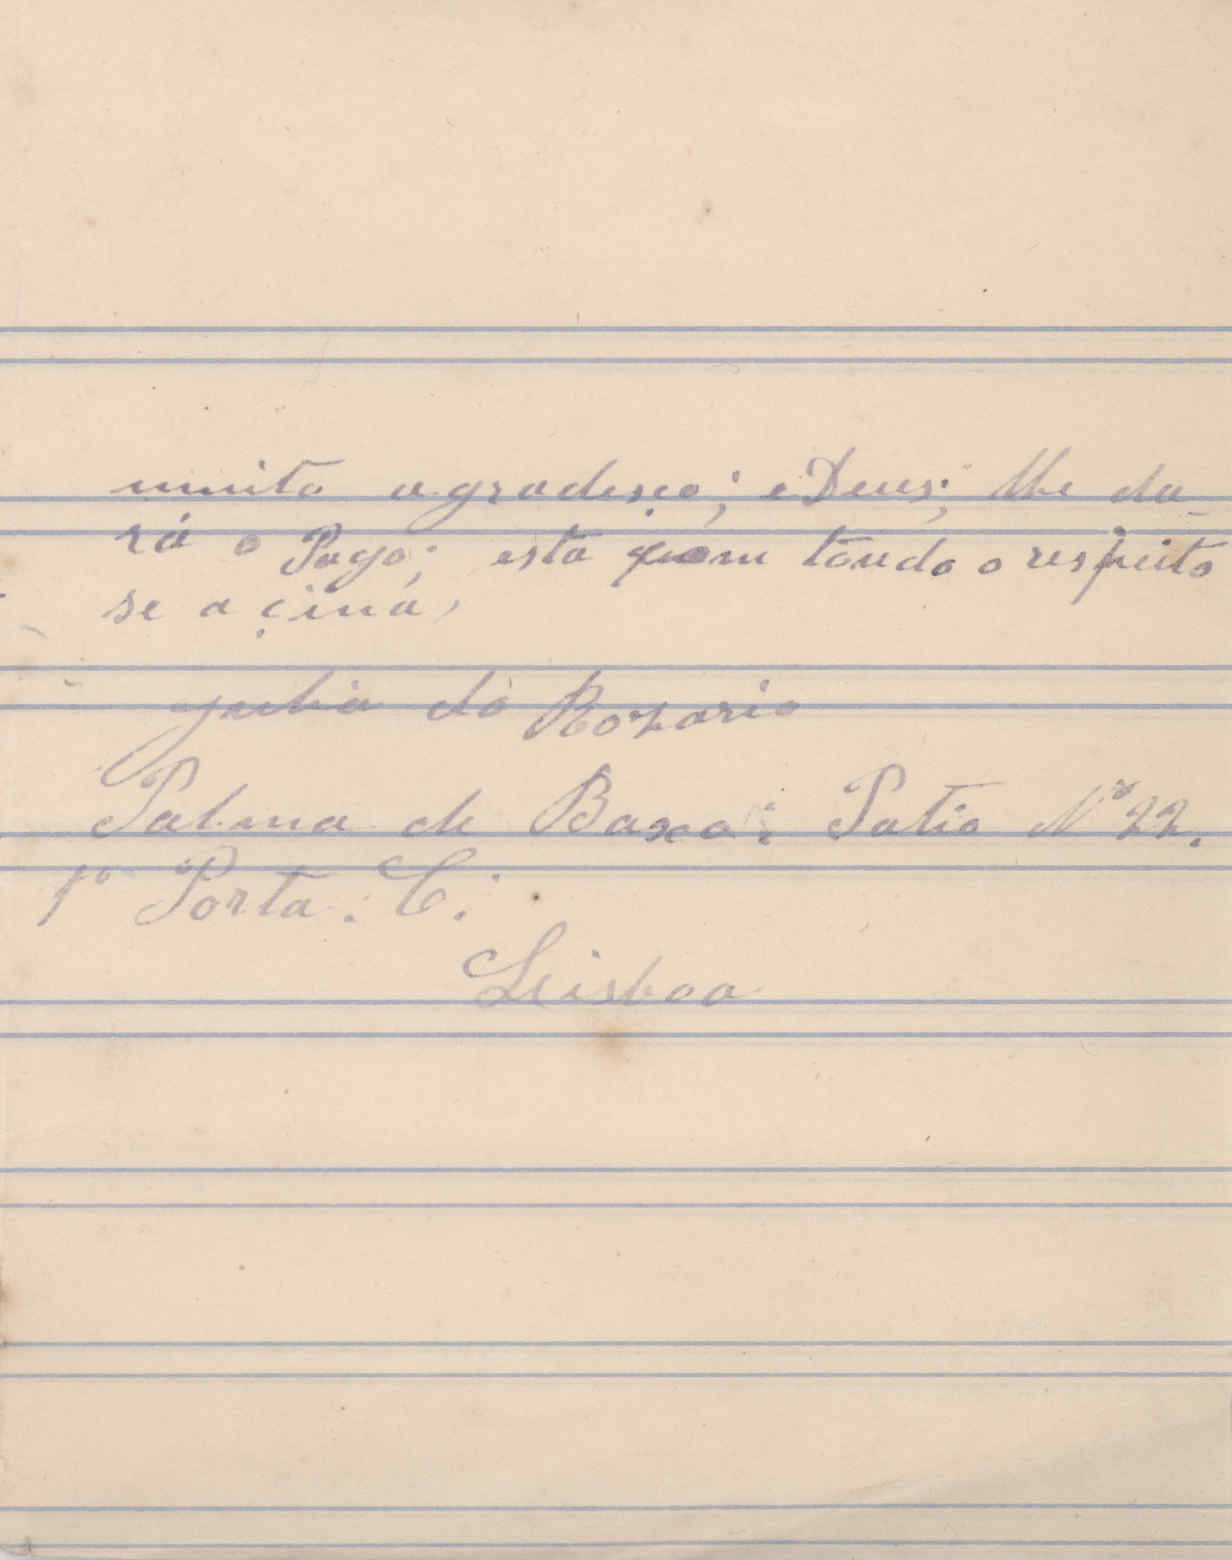 muito agradeço; e Deus; lhe da-
rá o Pago; esta quom toudo o respeito
se a çina,
Julia do Rozario
Palma de Baxo: Patio Nº 22.
1º Porta. C.
Leisboa